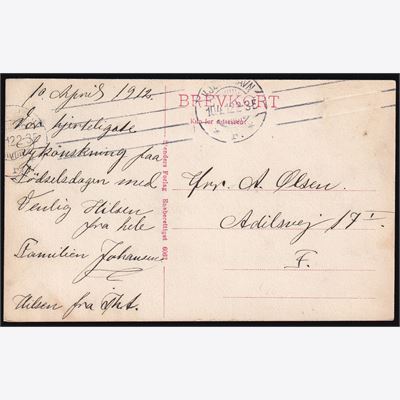 10 April 1912.
Vor hjerteligste
Lykønskning paa
Fødselsdagen med
Venlig Hilsen
fra hele
Familien Johansen
Hilsen fra
BREVKORT
Kun for Adressen.
Hrr. A. Olsen.
Adilsvej 17 I
F.
Stenders Forlag Eneberettiget 6062